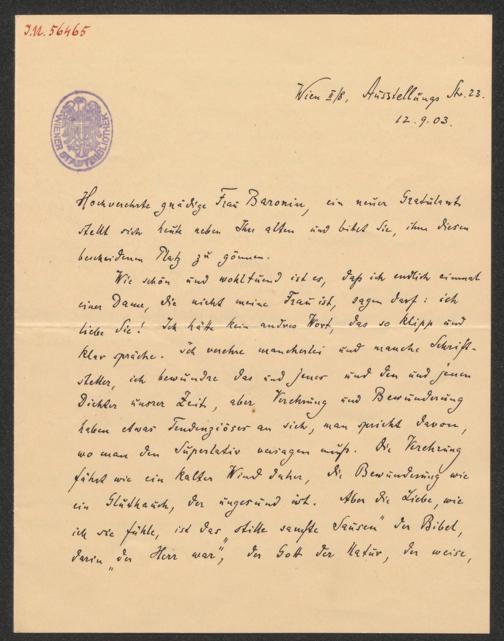 J.N. 56465
WIENER STADTBIBLIOTHEK
Wien II/8, Ausstellungs Str. 23.
12.9.03.
Hochverehrte gnädige Frau Baronin, ein neuer Gratulant
stellt sich heute neben Ihre alten und bittet Sie, ihm diesen
bescheidenen Platz zu gönnen.
Wie schön und wohltuend ist es, daß ich endlich einmal
einer Dame, die nicht meine Frau ist, sagen darf: ich
liebe Sie! Ich hätte kein andres Wort, das so klipp und
klar spräche. Ich verehre mancherlei und manche Schrift-
steller, ich bewundre das und jenes und den und jenen
Dichter unsrer Zeit, aber Verehrung und Bewunderung
haben etwas Tendenziöses an sich, man spricht davon,
wo man den Superlativ versagen muß. Die Verehrung
fährt wie ein kalter Wind daher, die Bewunderung wie
ein Gluthauch, der ungesund ist. Aber die Liebe, wie
ich sie fühle, ist das „stille sanfte Sausen" der Bibel,
darin „der Herr war", der Gott der Natur, der weise,